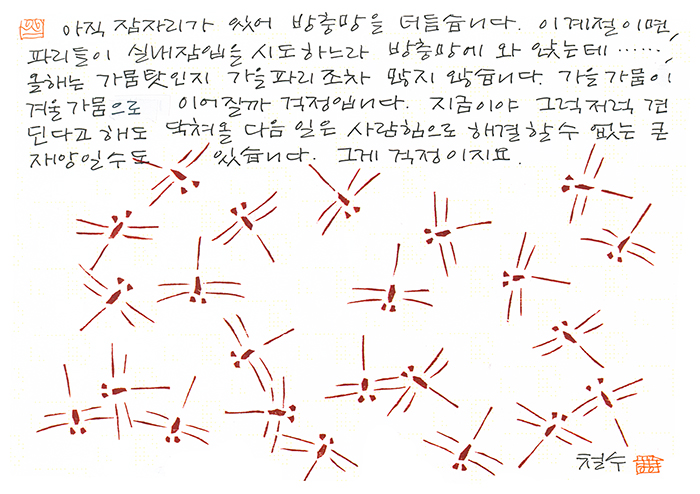 아직 잠자리가 있어 방충망을 더듬습니다. 이 계절이면,
파리들이 실내잠입을 시도하느라 방충망에 와 앉는데……
올해는 가뭄탓인지 가을파리조차 많지 않습니다. 가을가뭄이
겨울가뭄으로 이어질까 걱정입니다. 지금이야 그럭저럭 견
딘다고 해도 닥쳐올 다음 일은 사람힘으로 해결할 수 없는 큰
재앙일수도 있습니다. 그게 걱정이지요.
철수